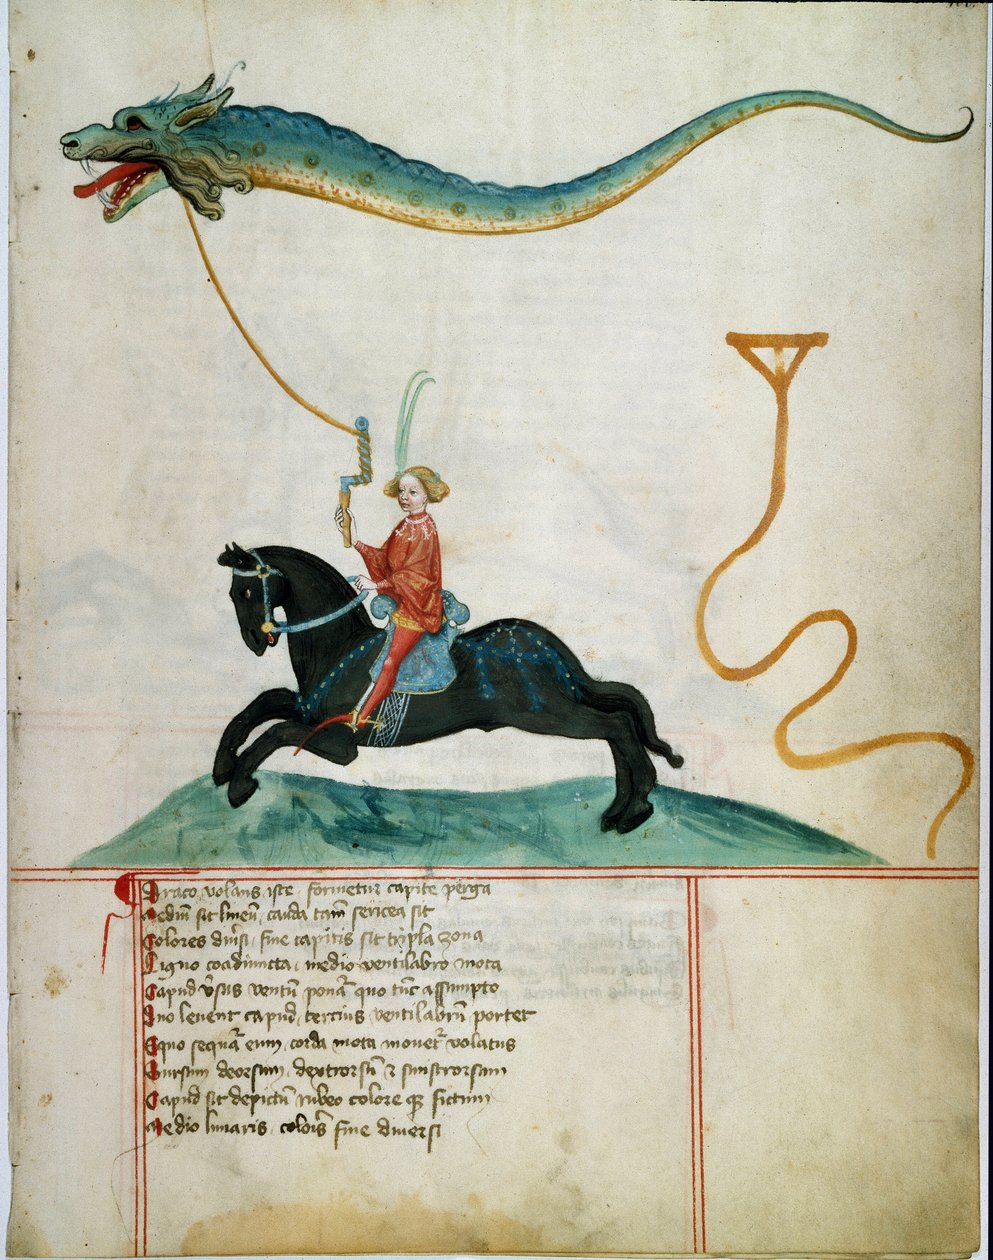 Draco volans iste formetur capite perga
Mediu sit lineu, cauda tam sericea sit
Colores diusi, fine capitis sit tripla zona
Ligno coadiuncta, medio ventilabro mota
Capud vsus ventu ponat quo tuc assumpto
Duo levent capud, tercius ventilabru portet
Equo sequat eum, corda mota mouet volatus
Sursum deorsum, dextrorsu & sinistrorsum
Capud sit depictu rubeo colore fictum
Medio lunaris, coloris fine diversi